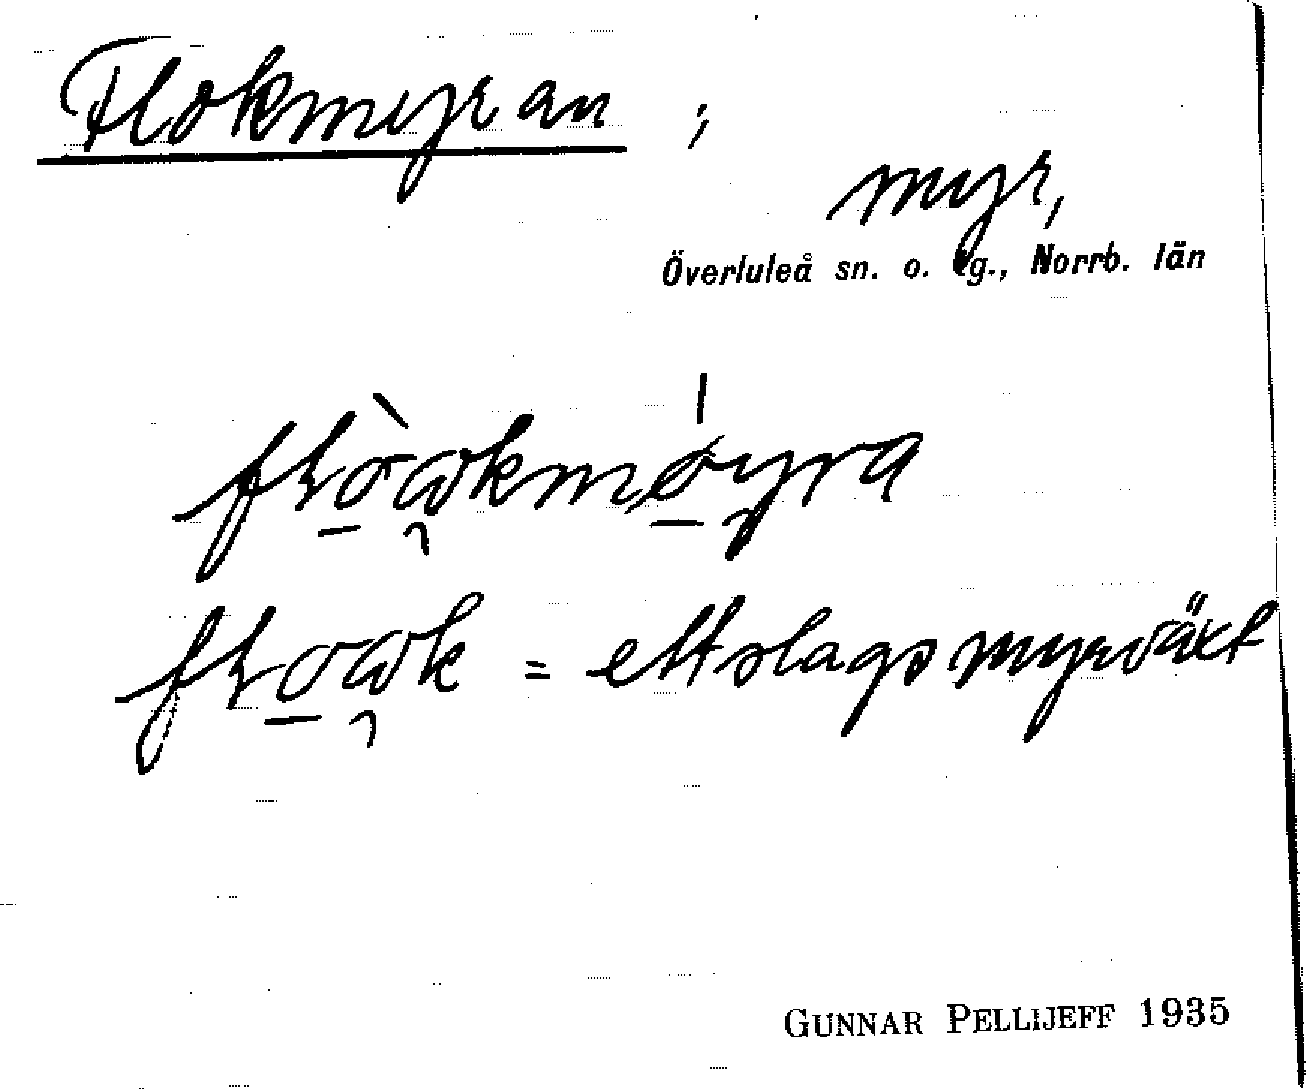 Flokmyran ;
myr,
Överluleå sn. o. tg., Norrb. län
= ett slags myrväxt
GUNNAR PELLIJEFF 1935